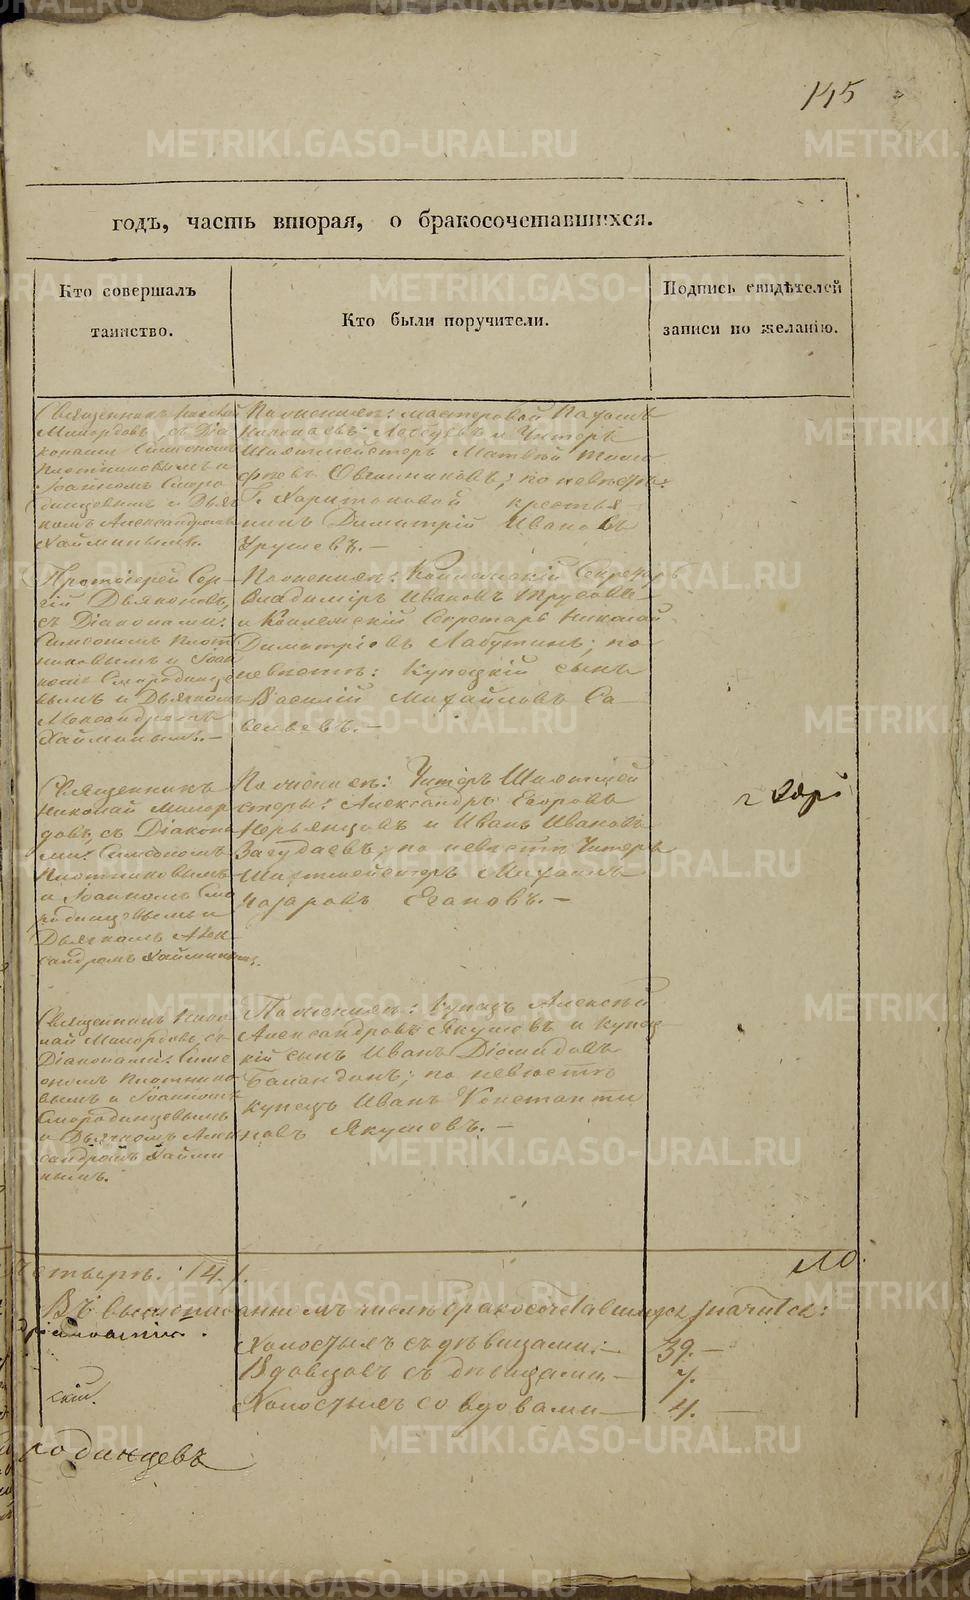 145
годъ, часть вторая, о бракосочетавшихся.
Кто совершалъ
таинство.
Кто были поручители.
Подпись свидѣтелей
записи по желанію.
Священникъ Николай
Милордовъ, съ Діа
конами Симеономъ
Плотниковымъ и
Іоанномъ Сморо
динцевымъ и Дьяч
комъ Александромъ
Хайминымъ.
По женихѣ: мастеровой
Николаевъ Лобцевъ и Унтеръ
Шихтмейстеръ Матвѣй Тимо
фѣевъ Овчинниковъ; по невѣстѣ:
Г. Харитоновой крестья
нинъ Димитрій Ивановъ
Урушевъ.—
Протоіерей Сер-
гій Дьяконовъ,
съ Діаконами:
Симеономъ Плот
никовымъ и Іоан
номъ Смородинце
вымъ и Дьячкомъ
Александромъ
Хайминымъ.—
По женихѣ: Коллежскій Секретарь
Владимиръ Ивановъ Трусовъ
и Коллежскій Секретарь Николай
Димитріевъ Лабутинъ; по
невѣстѣ: Купецкій сынъ
Василій Михайловъ Са-
вельевъ.—
Священникъ
Николай Милор
довъ, съ Діакона
ми: Симеономъ
Плотниковымъ
и Іоанномъ Смо
родинцевымъ и
Дьячкомъ Алек-
сандромъ Хайминымъ.
По женихѣ: Унтеръ Шихтмей
стеры: Александръ Егоровъ
и Иванъ Ивановъ
Загудаевъ; по невѣстѣ Унтеръ
Шихтмейстеръ Михаилъ
Назаровъ Ехановъ.—
Священникъ Нико
лай Милордовъ, съ
Діаконами: Симе
ономъ Плотнико
вымъ и Іоанномъ
Смородинцевымъ
и Дьячкомъ Алек
сандромъ Хайми
нымъ.
По женихѣ: купецъ Алексѣй
Александровъ Якушевъ и купец
кій сынъ Иванъ Діомидовъ
Баландинъ; по невѣстѣ
купецъ Иванъ Константи
новъ Якушевъ.—
14.
Въ вышеписанномъ числѣ бракосочетавшихся значится:
Холостыхъ съ дѣвицами:— 39.—
Вдовцовъ съ дѣвицами.— 7.
Холостыхъ со вдовами— 4.—
скій.
родинцевъ
METRIKI.GASO-URAL.RU